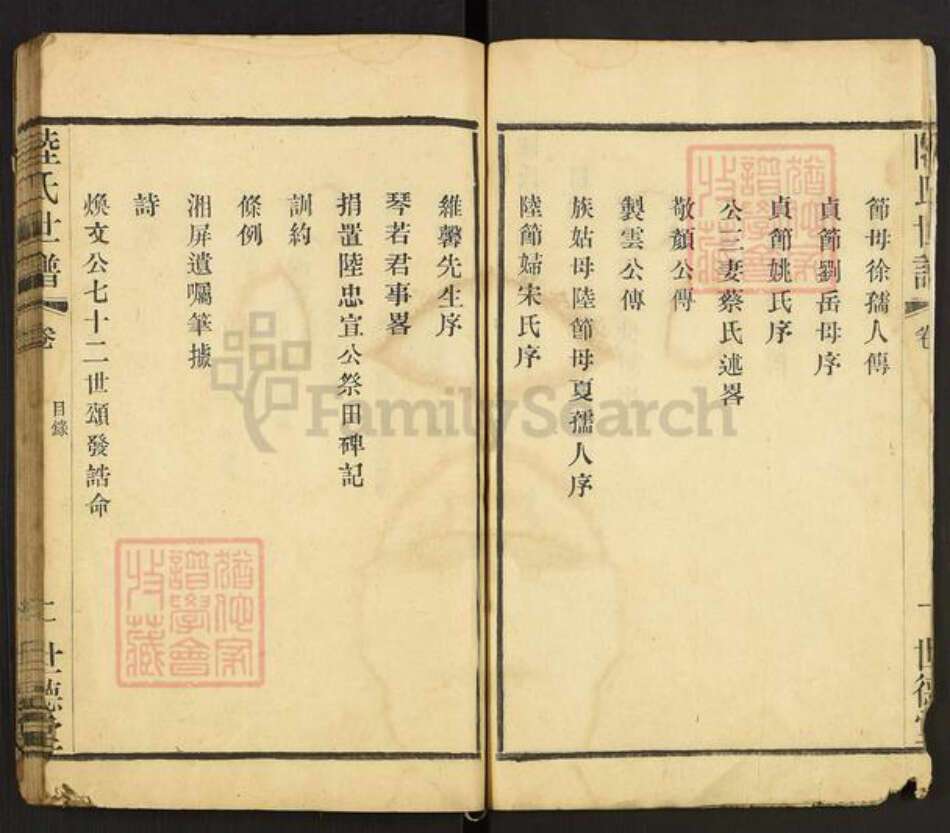 節母徐孺人傳
貞節劉岳母序
貞節姚氏序
公三妻蔡氏述畧
敬顏公傳
製雲公傳
族姑母陸節母夏孺人序
陸節婦宋氏序
維馨先生序
琴若君事畧
捐置陸忠宣公祭田碑記
訓約
條例
湘屏遺囑筆據
詩
煥文公七十二世頌發誥命
陸氏世譜
卷
目錄
二
世德堂
氏世譜
卷
一
世德堂
猶他家
譜學會
收藏
猶他家
譜學會
收藏
FamilySearch